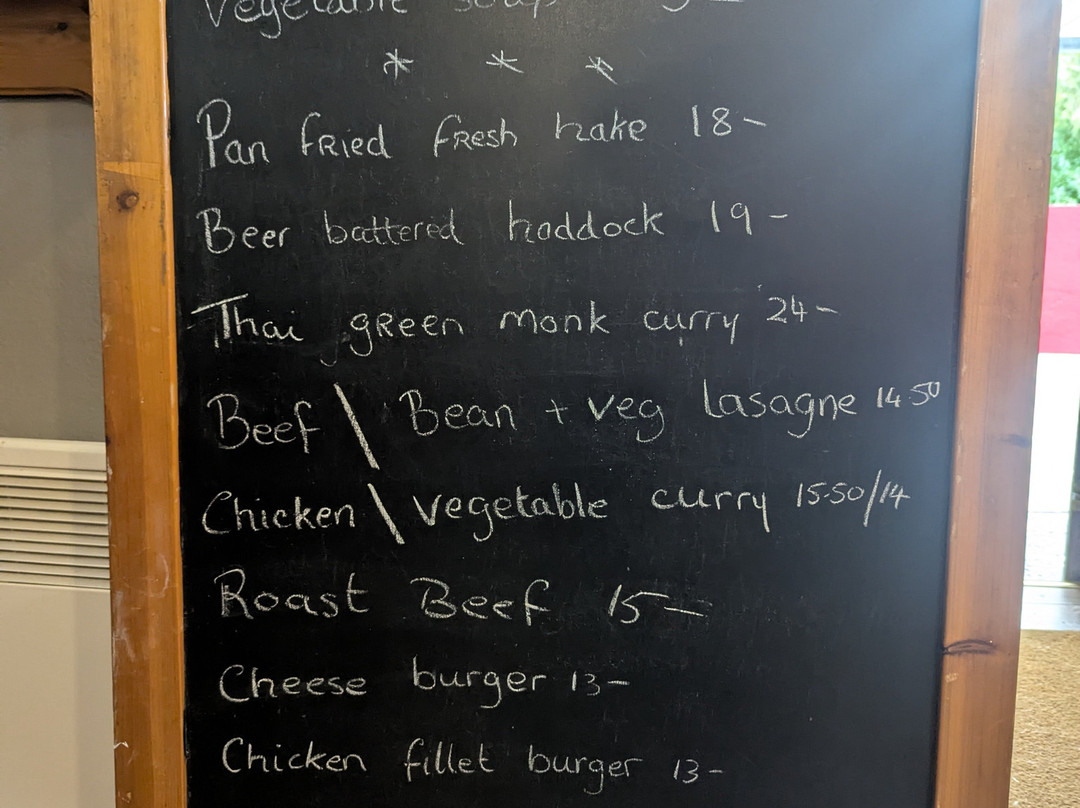 Vegetable soup
* * *
Pan fried fresh hake 18-
Beer battered haddock 19-
Thai green monk curry 24-
Beef \ Bean + veg lasagne 14.50
Chicken \ vegetable curry 15.50/14
Roast Beef 15-
Cheese burger 13-
Chicken fillet burger 13-